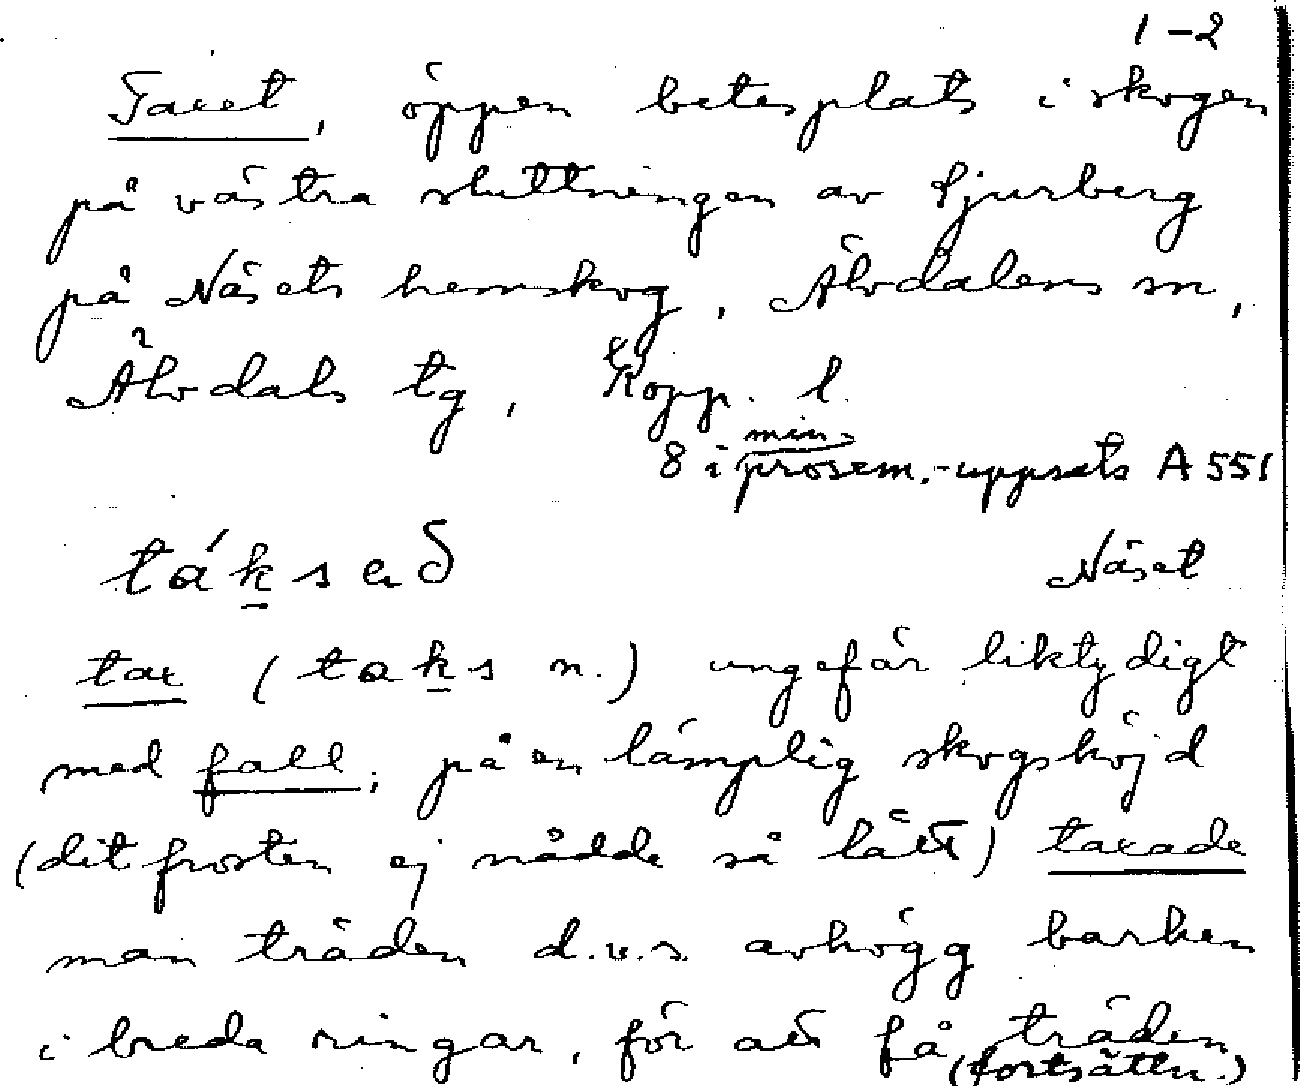 1-2
Taxet, öppen betesplats i skogen
på västra sluttningen av Tjurberg
på Näsets hemskog, Älvdalens sn,
Älvdals tg, Kopp. l.
8 i min prosem.-uppsats A 551
táksəð Näset
tax (taks n.) ungefär liktydigt
med fall; på en lämplig skogshöjd
(dit frosten ej nådde så lätt) taxade
man träden d.v.s. avhögg barken
i breda ringar, för att få träden
(fortsättn.)